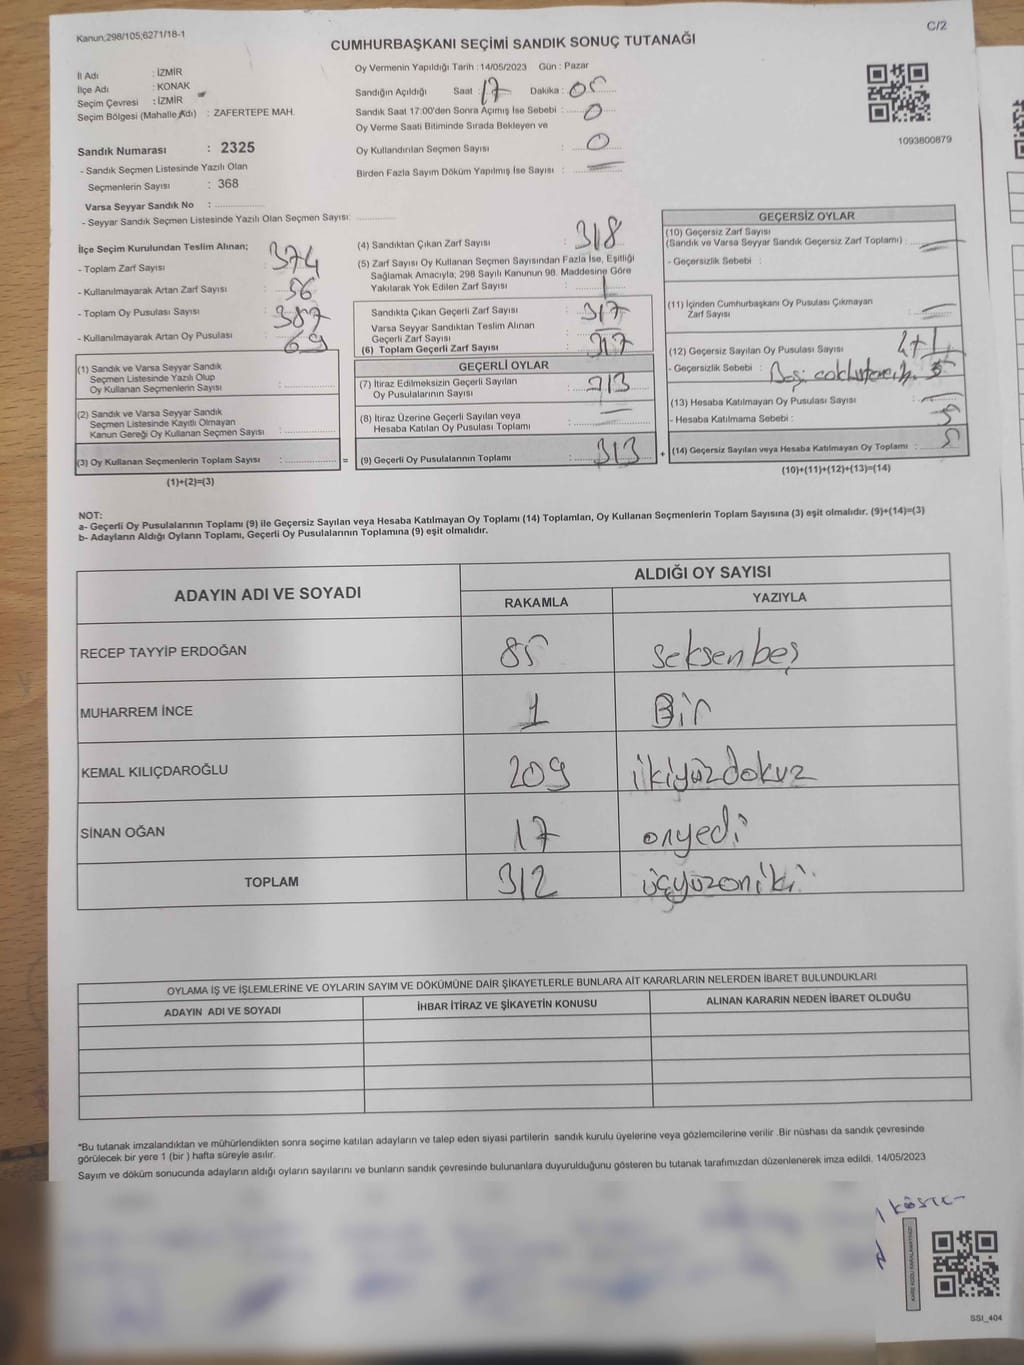 Kanun;298/105;6271/18-1
C/2
CUMHURBAŞKANI SEÇİMİ SANDIK SONUÇ TUTANAĞI
İl Adı : İZMİR
İlçe Adı : KONAK
Seçim Çevresi : İZMİR
Seçim Bölgesi (Mahalle Adı) : ZAFERTEPE MAH.
Sandık Numarası : 2325
- Sandık Seçmen Listesinde Yazılı Olan
Seçmenlerin Sayısı : 368
Varsa Seyyar Sandık No :
- Seyyar Sandık Seçmen Listesinde Yazılı Olan Seçmen Sayısı:
Oy Vermenin Yapıldığı Tarih :14/05/2023 Gün : Pazar
Sandığın Açıldığı Saat : 17 Dakika : 05
Sandık Saat 17:00'den Sonra Açımış İse Sebebi : 0
Oy Verme Saati Bitiminde Sırada Bekleyen ve
Oy Kullandırılan Seçmen Sayısı : 0
Birden Fazla Sayım Döküm Yapılmış İse Sayısı : —
1093800879
İlçe Seçim Kurulundan Teslim Alınan;
- Toplam Zarf Sayısı : 374
- Kullanılmayarak Artan Zarf Sayısı : 56
- Toplam Oy Pusulası Sayısı : 387
- Kullanılmayarak Artan Oy Pusulası : 69
(1) Sandık ve Varsa Seyyar Sandık
Seçmen Listesinde Yazılı Olup
Oy Kullanan Seçmenlerin Sayısı :
(2) Sandık ve Varsa Seyyar Sandık
Seçmen Listesinde Kayıtlı Olmayan
Kanun Gereği Oy Kullanan Seçmen Sayısı :
(3) Oy Kullanan Seçmenlerin Toplam Sayısı :
(1)+(2)=(3)
(4) Sandıktan Çıkan Zarf Sayısı : 318
(5) Zarf Sayısı Oy Kullanan Seçmen Sayısından Fazla İse, Eşitliği
Sağlamak Amacıyla; 298 Sayılı Kanunun 98. Maddesine Göre
Yakılarak Yok Edilen Zarf Sayısı : 1
Sandıkta Çıkan Geçerli Zarf Sayısı : 317
Varsa Seyyar Sandıktan Teslim Alınan
Geçerli Zarf Sayısı : —
(6) Toplam Geçerli Zarf Sayısı : 317
GEÇERLİ OYLAR
(7) İtiraz Edilmeksizin Geçerli Sayılan
Oy Pusulalarının Sayısı : 313
(8) İtiraz Üzerine Geçerli Sayılan veya
Hesaba Katılan Oy Pusulası Toplamı : —
= (9) Geçerli Oy Pusulalarının Toplamı : 313
GEÇERSİZ OYLAR
(10) Geçersiz Zarf Sayısı
(Sandık ve Varsa Seyyar Sandık Geçersiz Zarf Toplamı) : —
- Geçersizlik Sebebi :
(11) İçinden Cumhurbaşkanı Oy Pusulası Çıkmayan
Zarf Sayısı : —
(12) Geçersiz Sayılan Oy Pusulası Sayısı : 4+1
- Geçersizlik Sebebi : 5
(13) Hesaba Katılmayan Oy Pusulası Sayısı : —
- Hesaba Katılmama Sebebi : 5
+ (14) Geçersiz Sayılan veya Hesaba Katılmayan Oy Toplamı : 5
(10)+(11)+(12)+(13)=(14)
NOT:
a- Geçerli Oy Pusulalarının Toplamı (9) ile Geçersiz Sayılan veya Hesaba Katılmayan Oy Toplamı (14) Toplamları, Oy Kullanan Seçmenlerin Toplam Sayısına (3) eşit olmalıdır. (9)+(14)=(3)
b- Adayların Aldığı Oyların Toplamı, Geçerli Oy Pusulalarının Toplamına (9) eşit olmalıdır.
ADAYIN ADI VE SOYADI ALDIĞI OY SAYISI
RAKAMLA YAZIYLA
RECEP TAYYİP ERDOĞAN 85 seksenbeş
MUHARREM İNCE 1 Bir
KEMAL KILIÇDAROĞLU 209 ikiyüzdokuz
SİNAN OĞAN 17 onyedi
TOPLAM 312 üçyüzoniki
OYLAMA İŞ VE İŞLEMLERİNE VE OYLARIN SAYIM VE DÖKÜMÜNE DAİR ŞİKAYETLERLE BUNLARA AİT KARARLARIN NELERDEN İBARET BULUNDUKLARI
ADAYIN ADI VE SOYADI İHBAR İTİRAZ VE ŞİKAYETİN KONUSU ALINAN KARARIN NEDEN İBARET OLDUĞU
*Bu tutanak imzalandıktan ve mühürlendikten sonra seçime katılan adayların ve talep eden siyasi partilerin sandık kurulu üyelerine veya gözlemcilerine verilir .Bir nüshası da sandık çevresinde
görülecek bir yere 1 (bir ) hafta süreyle asılır.
Sayım ve döküm sonucunda adayların aldığı oyların sayılarını ve bunların sandık çevresinde bulunanlara duyurulduğunu gösteren bu tutanak tarafımızdan düzenlenerek imza edildi. 14/05/2023
SSI_404